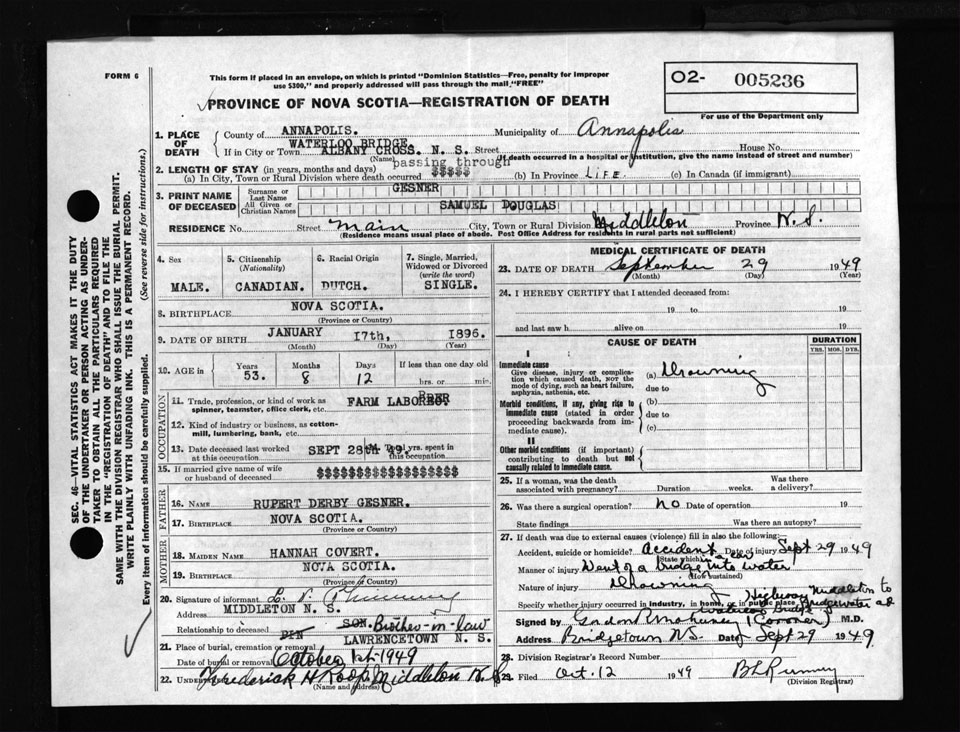 FORM 6
This form if placed in an envelope, on which is printed "Dominion Statistics—Free, penalty for improper
use $300," and properly addressed will pass through the mail "FREE"
O2- 005236
For use of the Department only
PROVINCE OF NOVA SCOTIA—REGISTRATION OF DEATH
1. PLACE OF DEATH
County of ANNAPOLIS. Municipality of Annapolis
WATERLOO BRIDGE
If in City or Town ALBANY CROSS. N. S. Street House No.
(Name) (If death occurred in a hospital or institution, give the name instead of street and number)
2. LENGTH OF STAY (in years, months and days) passing through
(a) In City, Town or Rural Division where death occurred $$$$$ (b) In Province LIFE (c) In Canada (if immigrant)
3. PRINT NAME OF DECEASED
Surname or Last Name GESNER
All Given or Christian Names SAMUEL DOUGLAS
RESIDENCE No. Street Main City, Town or Rural Division Middleton Province N.S.
(Residence means usual place of abode. Post Office Address for residents in rural parts not sufficient)
4. Sex MALE.
5. Citizenship (Nationality) CANADIAN.
6. Racial Origin DUTCH.
7. Single, Married, Widowed or Divorced (write the word) SINGLE.
8. BIRTHPLACE NOVA SCOTIA.
(Province or Country)
9. DATE OF BIRTH JANUARY 17th, 1896.
(Month) (Day) (Year)
10. AGE in Years 53. Months 8 Days 12 If less than one day old hrs. or min.
OCCUPATION
11. Trade, profession, or kind of work as
spinner, teamster, office clerk, etc. FARM LABORER
12. Kind of industry or business, as cotton-
mill, lumbering, bank, etc.
13. Date deceased last worked
at this occupation SEPT 28th 49 14. Total yrs. spent in
this occupation
15. If married give name of wife
or husband of deceased $$$$$$$$$$$$$$$$$$$
FATHER
16. NAME RUPERT DERBY GESNER.
17. BIRTHPLACE NOVA SCOTIA.
(Province or Country)
MOTHER
18. MAIDEN NAME HANNAH COVERT.
19. BIRTHPLACE NOVA SCOTIA.
(Province or Country)
20. Signature of informant
Address MIDDLETON N. S.
Relationship to deceased SON. Brother-in-law
21. Place of burial, cremation or removal LAWRENCETOWN N. S.
Date of burial or removal October 1st 1949
22. Undertaker Frederick H Roop Middleton N.S.
(Name and address)
MEDICAL CERTIFICATE OF DEATH
23. DATE OF DEATH September 29 1949
(Month) (Day) (Year)
24. I HEREBY CERTIFY that I attended deceased from:
19 to 19
and last saw h alive on 19
CAUSE OF DEATH
DURATION
YRS. MOS. DYS.
I
Immediate cause
Give disease, injury or complica-
tion which caused death, NOT the
mode of dying, such as heart failure,
asphyxia, asthenia, etc.
(a) Drowning
due to
Morbid conditions, if any, giving rise to
immediate cause (stated in order
proceeding backwards from im-
mediate cause).
(b)
due to
(c)
II
Other morbid conditions (if important)
contributing to death but not
causally related to immediate cause.
25. If a woman, was the death
associated with pregnancy? Duration weeks. Was there
a delivery?
26. Was there a surgical operation? No Date of operation 19
State findings Was there an autopsy?
27. If death was due to external causes (violence) fill in also the following:
Accident, suicide or homicide? Accident Date of injury Sept 29 1949
(State which) in a car
Manner of injury Went of a bridge into water
(How sustained)
Nature of injury Drowning
Highway Middleton to
Specify whether injury occurred in industry, in home, or in public place Bridgewater at
Waterloo bridge
Signed by (Coroner) M.D.
Address Bridgetown NS Date Sept 29 1949
28. Division Registrar's Record Number
29. Filed Oct. 12 1949
(Division Registrar)
SEC. 46—VITAL STATISTICS ACT MAKES IT THE DUTY
OF THE UNDERTAKER OR PERSON ACTING AS UNDER-
TAKER TO OBTAIN ALL THE PARTICULARS REQUIRED
IN THE "REGISTRATION OF DEATH" AND TO FILE THE
SAME WITH THE DIVISION REGISTRAR WHO SHALL ISSUE THE BURIAL PERMIT.
WRITE PLAINLY WITH UNFADING INK. THIS IS A PERMANENT RECORD.
Every item of information should be carefully supplied. (See reverse side for instructions.)